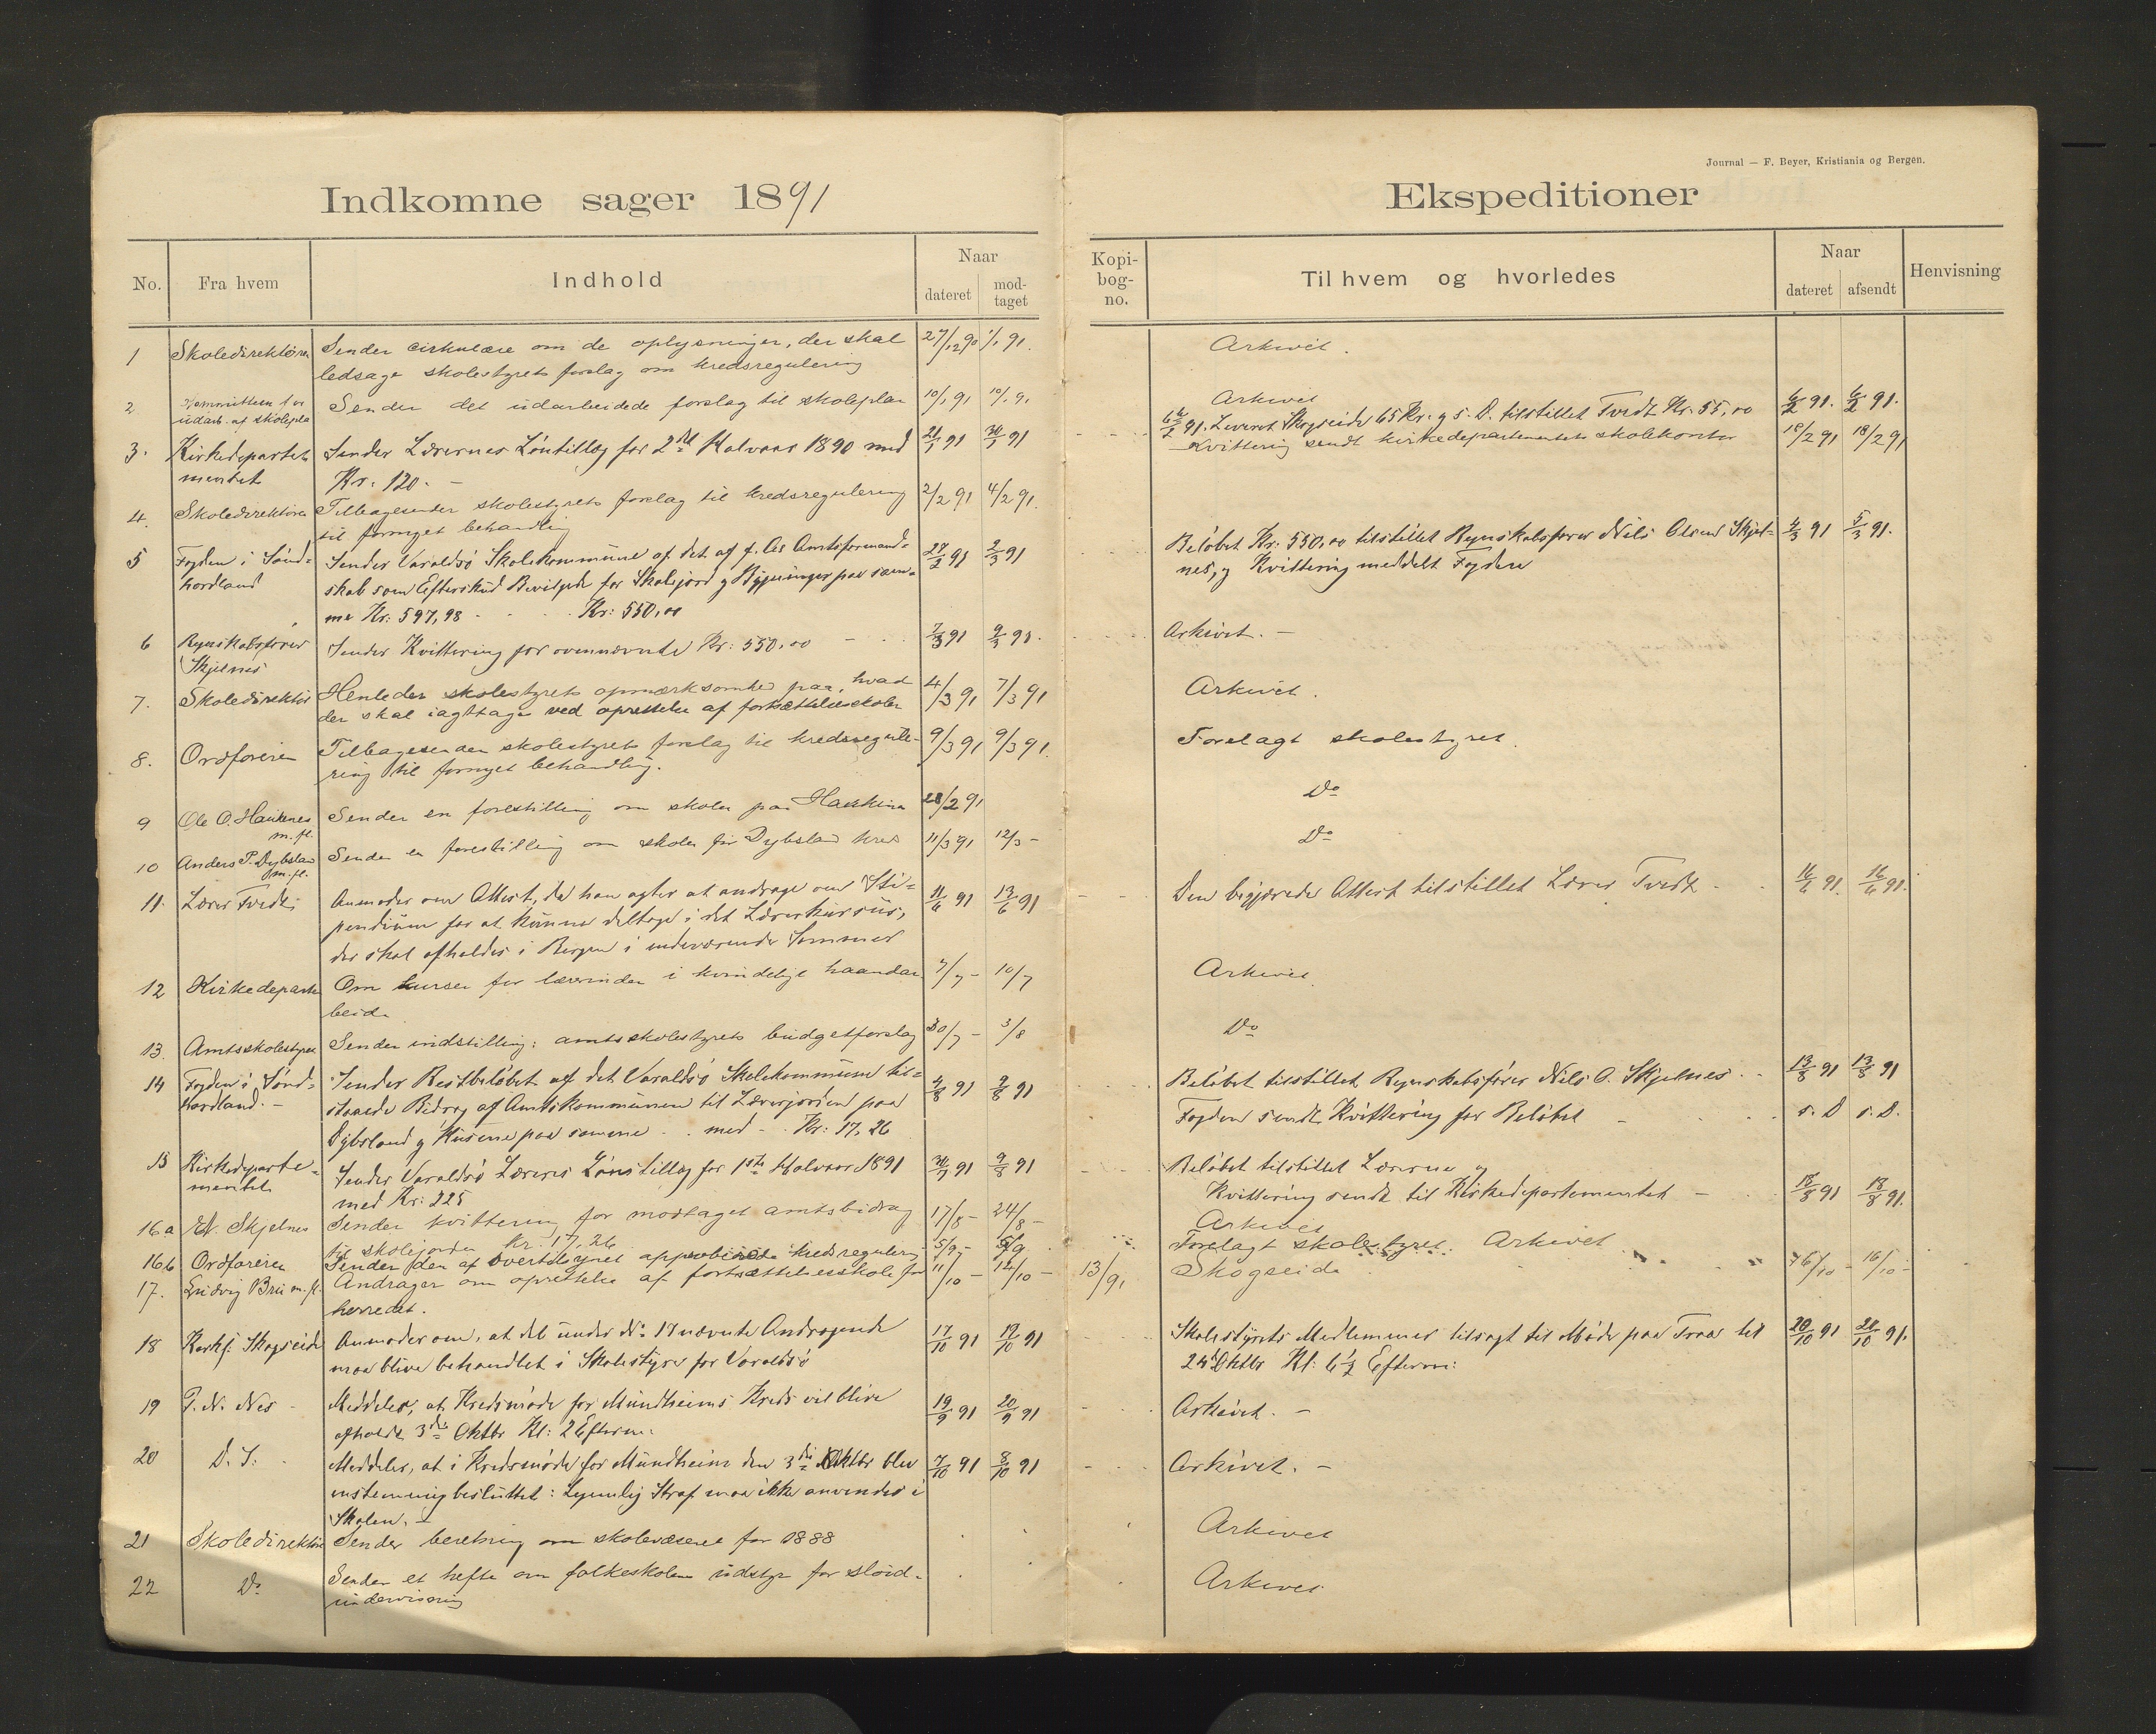 Journal — F. Beyer, Kristiania og Bergen.
Indkomne sager 1891
Ekspeditioner
No.
Fra hvem
Indhold
Naar
dateret
mod-
taget
Kopi-
bog-
no.
Til hvem og hvorledes
Naar
dateret
afsendt
Henvisning
1 Skoledirektøren Sender cirkulære om de oplysninger, der skal 27/12 90 1/1 91. Arkivet.
ledsage skolestyrets forslag om kredsregulering
2 Kommitteen for Sender det udarbeidede forslag til skoleplan 10/1 91 10/1 91 Arkivet
udarb. af skolepla
6/2 91. Leveret Skogseide 65 Kr. og s. D. tilstillet Tvedt Kr. 55,00 6/2 91. 6/2 91.
3. Kirkedeparte- Sender Lærernes Løntillæg for 2det Halvaar 1890 med 21/1 91 30/1 91 Kvittering sendt kirkedepartementets skolekontor 18/2 91 18/2 91
mentet Kr. 120. —
4. Skoledirektøren Tilbagesender skolestyrets forslag til kredsregulering 2/2 91 4/2 91.
til fornyet behandling
5 Fogden i Sønd- Sender Varaldsø Skolekommune af det af f. As Amtsformand- 27/2 91 2/3 91 Beløbet Kr. 550,00 tilstillet Regnskabsfører Nils Olsen Skjel- 4/3 91 5/3 91.
hordland skab som Efterskud Bevilgede for Skolejord og Bygninger paa sam- nes, og Kvittering meddelt Fogden
me Kr. 597,98 - Kr: 550,00
6 Regnskabsfører Sender Kvittering for ovennævnte Kr: 550,00 7/3 91 9/3 91. Arkivet. —
Skjelnes
7. Skoledirektør Henleder skolestyrets opmærksomhed paa, hvad 4/3 91 7/3 91 Arkivet.
der skal iagttages ved oprettelse af fortsættelsesskoler
8. Ordføreren Tilbagesender skolestyrets forslag til kredsregule- 9/3 91 9/3 91. Forelagt skolestyret.
ring til fornyet behandling.
9 Ole O. Haukenes Sender en forestilling om skolen paa Haukenes 28/2 91 Do
m. fl.
10 Anders P. Dybsland Sender en forestilling om skolen for Dybsland kreds 11/3 91 12/3 - Do
m. fl.
11. Lærer Tvedt Anmoder om Attest, da han agter at andrage om Sti- 11/6 91 13/6 91 Den begjærede Attest tilstillet Lærer Tvedt 16/6 91. 16/6 91.
pendium for at kunne deltage i det Lærerkursus,
der skal afholdes i Bergen i indeværende Sommer
12 Kirkedeparte Om kurser for lærerinder i kvindelige haandar 7/7 - 10/7 Arkivet.
beide
13. Amtsskolestyret Sender indstilling: amtsskolestyrets budgetforslag 30/7 - 3/8 Do
14 Fogden i Sønd- Sender Restbeløbet af det Varaldsø Skolekommune til- 4/8 91 9/8 91 Beløbet tilstillet Regnskabsfører Nils O. Skjelnes 13/8 91 13/8 91
hordland. — staaede Bidrag af Amtskommunen til Lærerjorden paa Fogden sendt Kvittering for Beløbet s. D s. D.
Dybsland og Husene paa samme . . med - . Kr: 17,26
15 Kirkedeparte- Sender Varaldsø Læreres Lønstillæg for 1ste Halvaar 1891 30/7 91 9/8 91 Beløbet tilstillet Lærerne og
mentet med Kr: 225 Kvittering sendt til Kirkedepartementet — 18/8 91 18/8 91.
16 a N. Skjelnes Sender kvittering for modtaget amtsbidrag 17/8 - 24/8 - Arkivet
til skolejorden Kr. 17,26
16 b Ordføreren Sender den af overtilsynet approberede kredsregulering 5/9 - 6/9 Forelagt skolestyret. Arkivet
17. Ludvig Brii m. fl. Andrager om oprettelse af fortsættelsesskole for 11/10 - 14/10 - 13/91 Skogseide 16/10 - 16/10 -
herredet.
18 Kirks. Skogseide Anmoder om, at det under No 17 nævnte Andragende 17/10 91 19/10 91 Skolestyrets Medlemmer tilsagt til Møde paa Traa til 20/10 91 20/10 91.
maa blive behandlet i Skolestyret for Varaldsø 24de Oktbr Kl: 6½ Efterm:
19 P. N. Nes Meddeler, at Kredsmøde for Mundheims Kreds vil blive 19/9 91 20/9 91 Arkivet. —
afholdt 3die Oktbr Kl: 2 Efterm.
20 D. S. Meddeler, at i Kredsmøde for Mundheim den 3die Oktbr blev 7/10 91 8/10 91 Arkivet. —
enstemmig besluttet: Legemlig Straf maa ikke anvendes i
Skolen. —
21 Skoledirektør Sender beretning om skolevæsenet for 1888 Arkivet
22 Do Sender et hefte om folkeskolens udstyr for sløid- Arkivet
undervisning